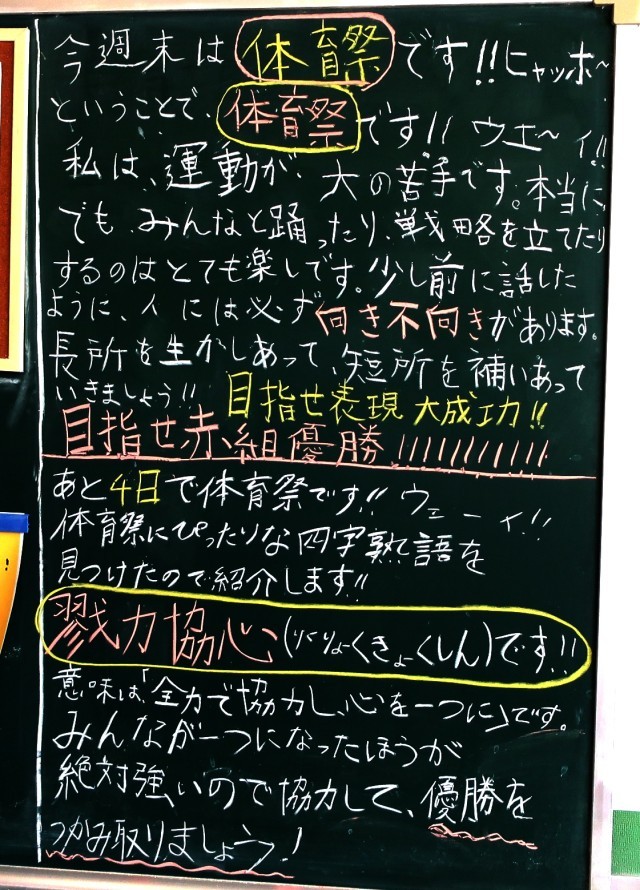 今週末は体育祭です!!ヒャッホ〜
ということで、体育祭です!!ウエ〜イ!!
私は、運動が、大の苦手です。本当に。
でも、みんなと踊ったり、戦略を立てたり
するのはとても楽しです。少し前に話した
ように、人には必ず向き不向きがあります。
長所を生かしあって、短所を補いあって
いきましょう!!目指せ表現大成功!!
目指せ赤組優勝!!!!!!!!!!!
あと4日で体育祭です!!ウェーイ!!
体育祭にぴったりな四字熟語を
見つけたので紹介します!!
戮力協心(りくりょくきょくしん)です!!
意味は、「全力で協力し、心を一つに」です。
みんなが一つになったほうが
絶対強いので協力して、優勝を
つかみ取りましょう!